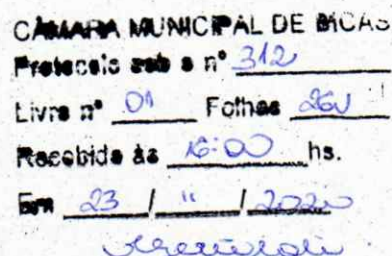 CÂMARA MUNICIPAL DE BICAS
Protocolo sob o nº 312
Livro nº 01 Folhas 26v
Recebido às 16:00 hs.
Em 23 / 11 / 2020